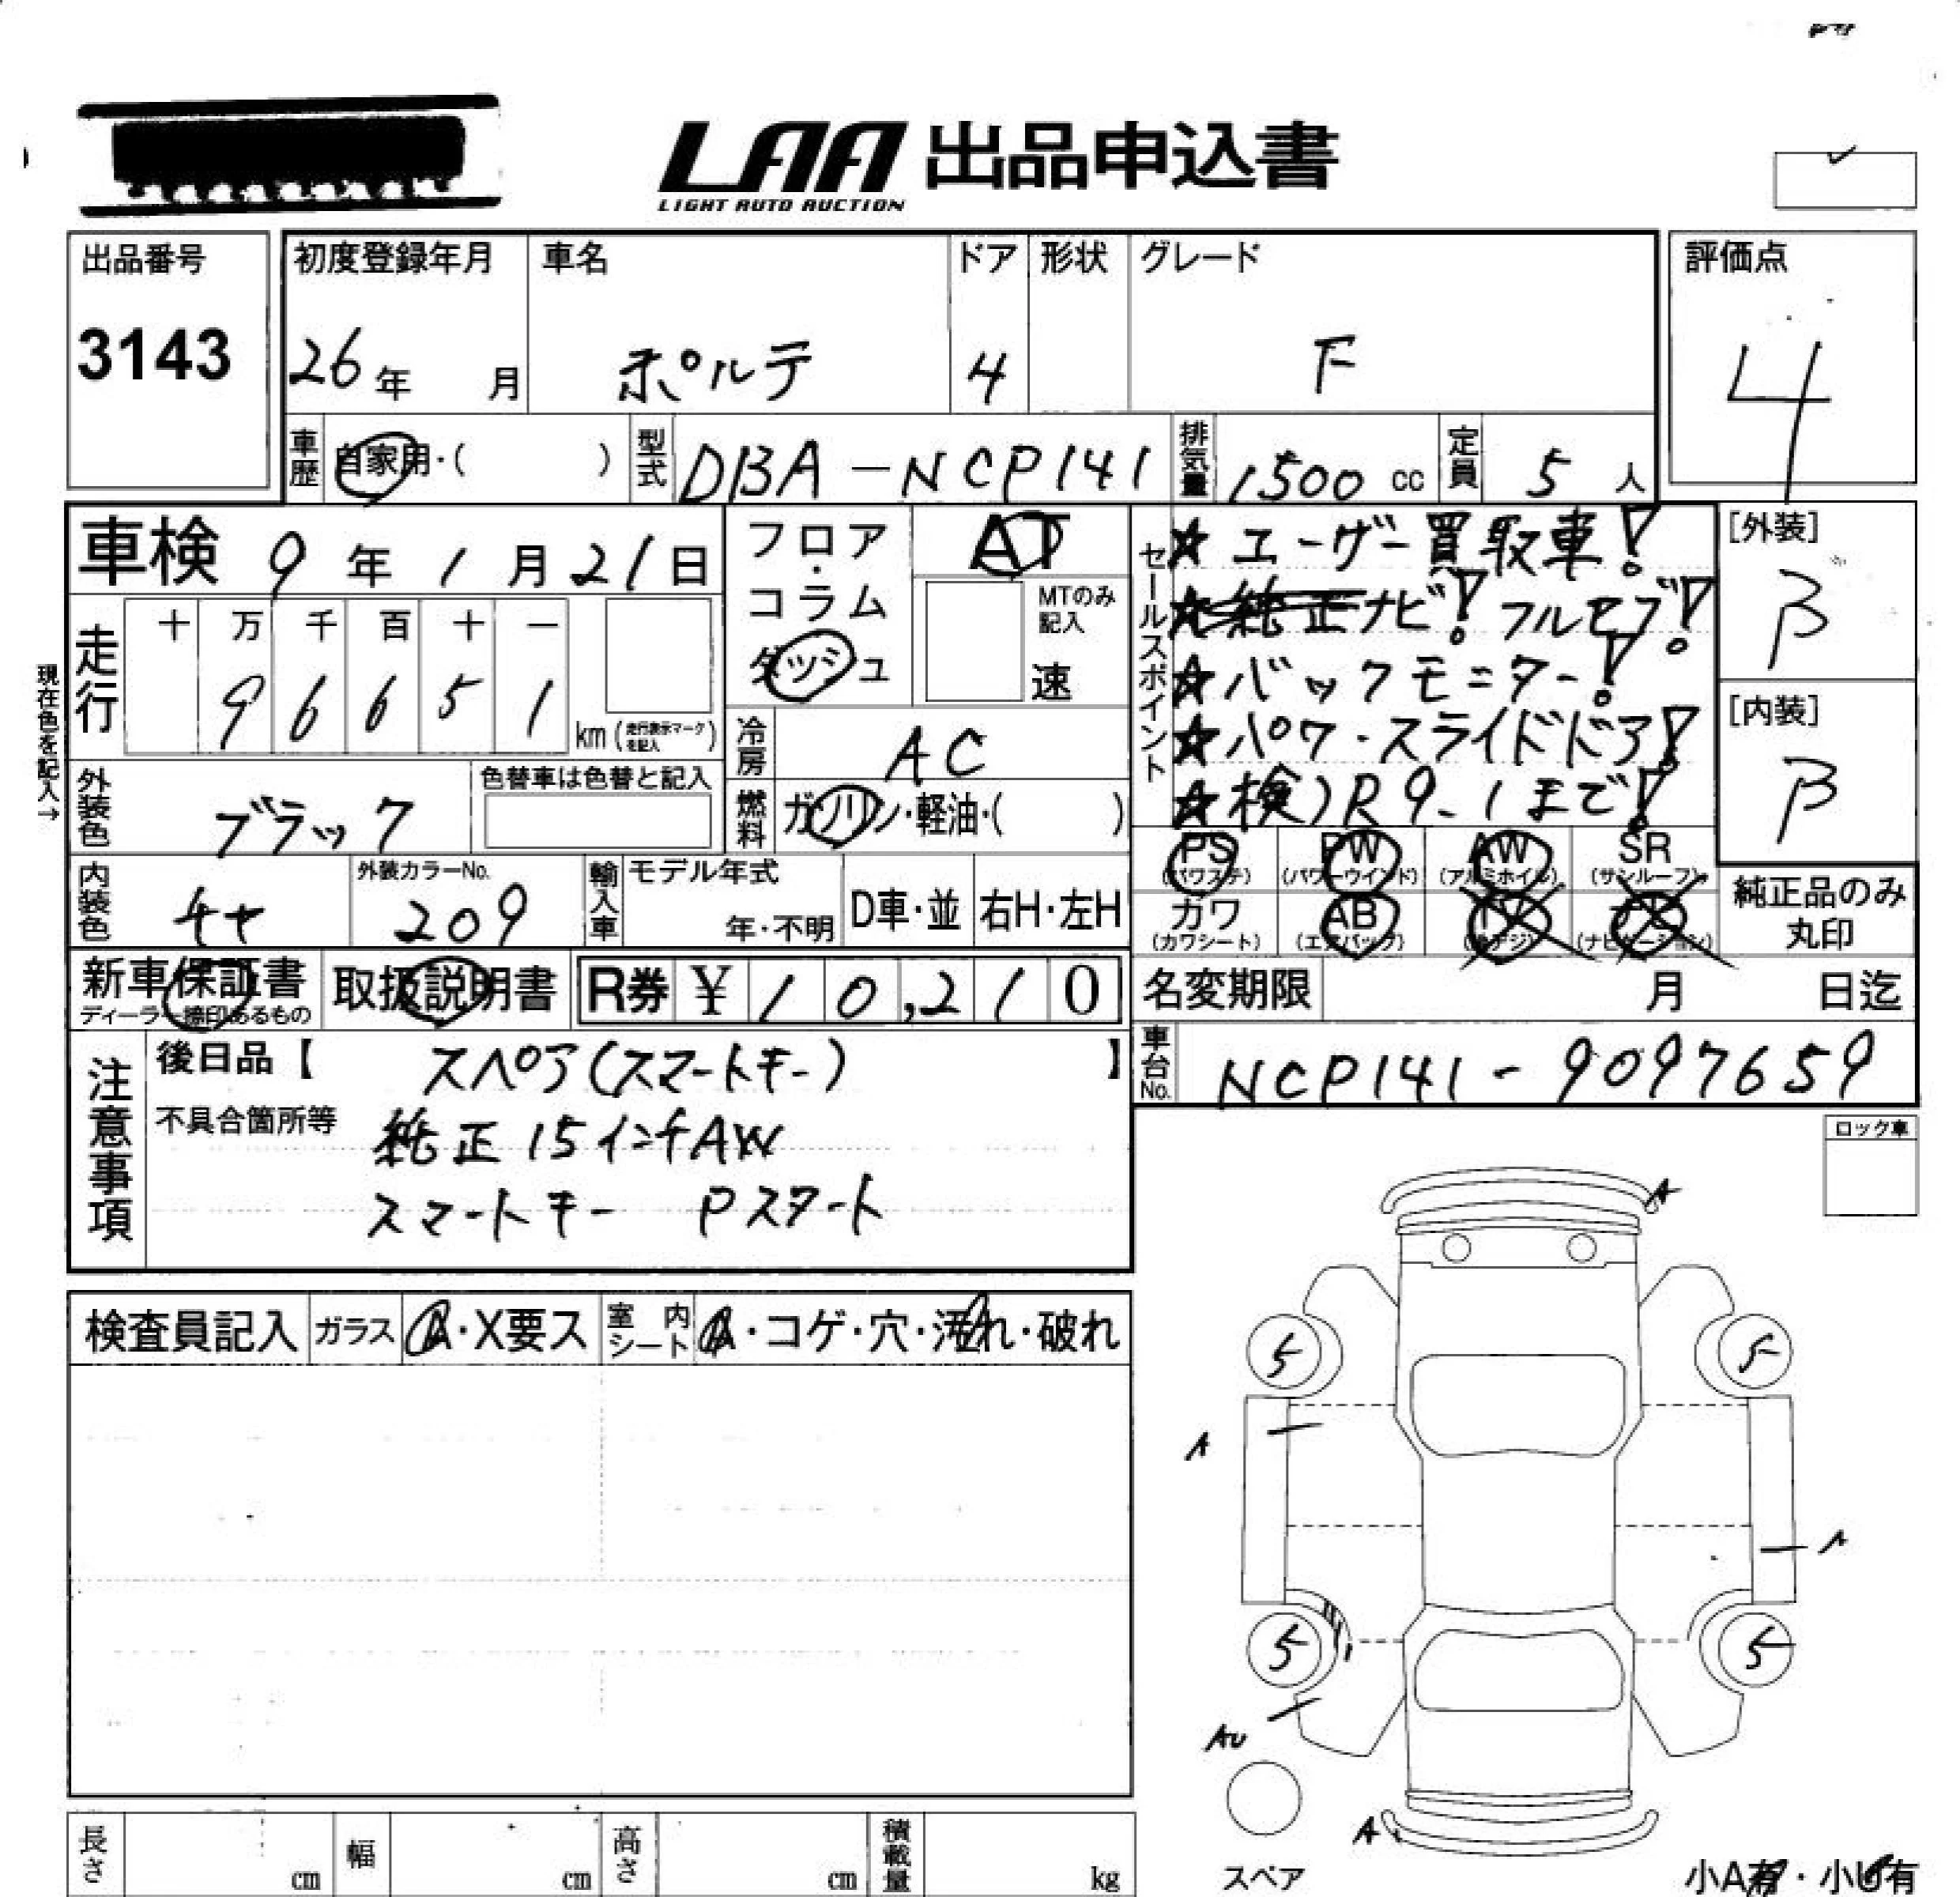 LAA 出品申込書
LIGHT AUTO AUCTION
出品番号
3143
初度登録年月
26年 月
車名
ポルテ
ドア
4
形状
グレード
F
評価点
4
車歴 自家用・( )
型式 DBA-NCP141
排気量 1500 cc
定員 5 人
車検 9年 1月 21日
フロア・コラム
ダッシュ
AT
MTのみ記入
速
セールスポイント
☆ユーザー買取車!
☆純正ナビ!フルセグ!
☆バックモニター!
☆パワースライドドア!
☆検)R9.1まで!
[外装]
B
[内装]
B
現在色を記入→
走行
十 万 千 百 十 一
9 6 6 5 1
km(走行表示マークを記入)
冷房 AC
燃料 ガソリン・軽油・( )
外装色 ブラック
色替車は色替と記入
内装色 チャ
外装カラーNo.
209
輸入車
モデル年式
年・不明
D車・並
右H・左H
PS (パワステ)
PW (パワーウインド)
AW (アルミホイル)
SR (サンルーフ)
カワ (カワシート)
AB (エアバック)
純正品のみ丸印
新車保証書
ディーラー捺印あるもの
取扱説明書
R券 ¥ 10,210
名変期限 月 日迄
注意事項
後日品【 スペア(スマートキー) 】
不具合箇所等
純正15インチAW
スマートキー Pスタート
車台No. NCP141-9097659
ロック車
検査員記入
ガラス A・X要ス
室内シート A・コゲ・穴・汚れ・破れ
A
5 5
A
A
5 5
AU
A
スペア
小A有・小U有
長さ cm
幅 cm
高さ cm
積載量 kg